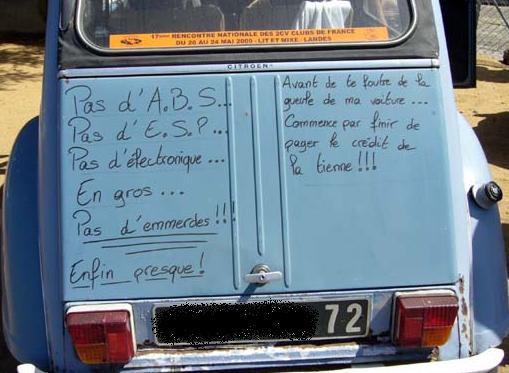 17ème RENCONTRE NATIONALE DES 2CV CLUBS DE FRANCE
DU 20 AU 24 MAI 2009 - LIT ET MIXE - LANDES
CITROËN
Pas d'A.B.S...
Pas d'E.S.P...
Pas d'électronique...
En gros...
Pas d'emmerdes !!!
Enfin presque !
Avant de te foutre de la
gueule de ma voiture ...
Commence par finir de
payer le crédit de
la tienne !!!
72